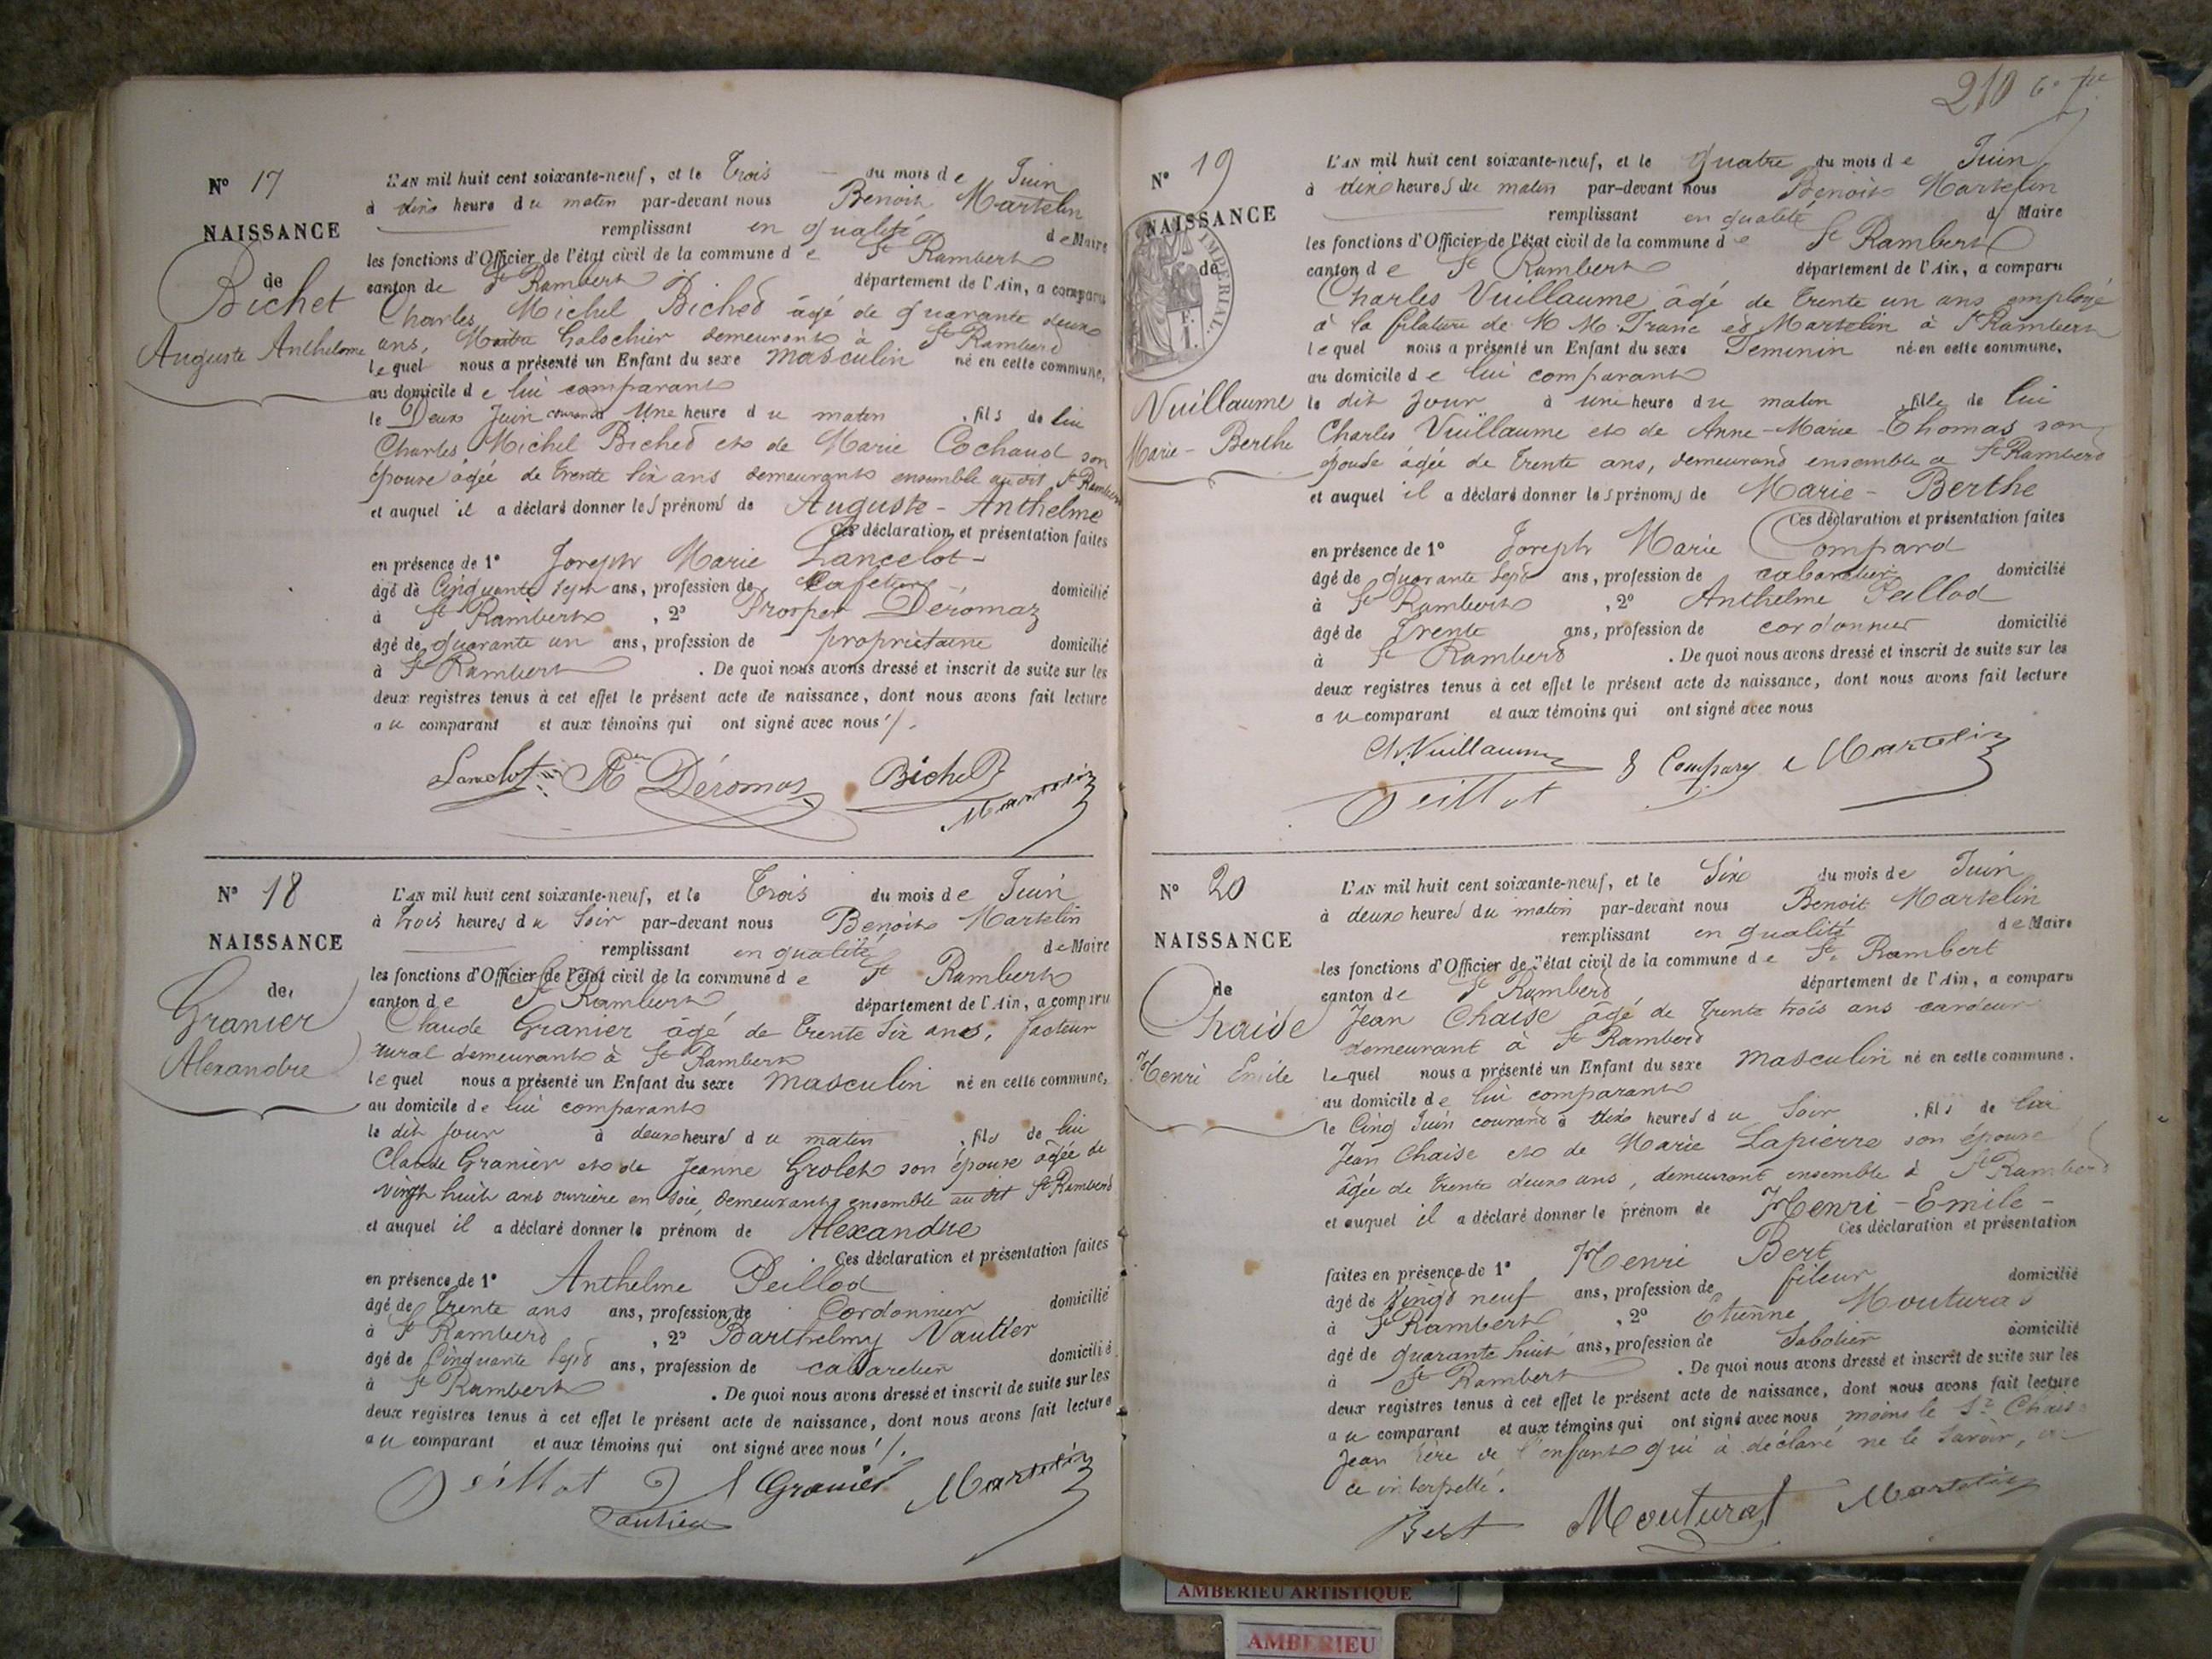 N° 17
NAISSANCE
de
Bichet
Auguste Anthelme
L'AN mil huit cent soixante-neuf, et le Trois du mois de Juin
à dix heure du matin par-devant nous Benoit Martelin
remplissant en qualité de Maire
les fonctions d'Officier de l'état civil de la commune de St Rambert
canton de St Rambert département de l'Ain, a comparu
Charles Michel Bichet âgé de quarante deux
ans, Maitre Galochier demeurant à St Rambert
lequel nous a présenté un Enfant du sexe masculin né en cette commune,
au domicile de lui comparant
le Deux Juin courant Une heure du matin , fils de lui
Charles Michel Bichet et de Marie Cochaud son
épouse âgée de trente six ans demeurant ensemble au dit St Rambert
et auquel il a déclaré donner les prénoms de Auguste - Anthelme
Ces déclaration et présentation faites
en présence de 1° Joseph Marie Lancelot
âgé de Cinquante sept ans, profession de Cafetier domicilié
à St Rambert , 2° Prosper Déromaz
âgé de quarante un ans, profession de propriétaire domicilié
à St Rambert . De quoi nous avons dressé et inscrit de suite sur les
deux registres tenus à cet effet le présent acte de naissance, dont nous avons fait lecture
au comparant et aux témoins qui ont signé avec nous ./.
Lancelot Déromas Bichet Martelin
N° 18
NAISSANCE
de
Granier
Alexandre
L'AN mil huit cent soixante-neuf, et le Trois du mois de Juin
à trois heures du soir par-devant nous Benoit Martelin
remplissant en qualité de Maire
les fonctions d'Officier de l'état civil de la commune de St Rambert
canton de St Rambert département de l'Ain, a comparu
Claude Granier âgé de trente six ans, facteur
rural demeurant à St Rambert
lequel nous a présenté un Enfant du sexe masculin né en cette commune,
au domicile de lui comparant
le dit jour à deux heures du matin , fils de lui
Claude Granier et de Jeanne Grolet son épouse âgée de
vingt huit ans ouvrière en soie, demeurant ensemble au dit St Rambert
et auquel il a déclaré donner le prénom de Alexandre
Ces déclaration et présentation faites
en présence de 1° Anthelme Peillod
âgé de trente ans ans, profession de Cordonnier domicilié
à St Rambert , 2° Barthelmy Vautier
âgé de Cinquante sept ans, profession de cabaretier domicilié
à St Rambert . De quoi nous avons dressé et inscrit de suite sur les
deux registres tenus à cet effet le présent acte de naissance, dont nous avons fait lecture
au comparant et aux témoins qui ont signé avec nous ./.
Peillot Granier Martelin
Vautier
210
N° 19
NAISSANCE
de
IMPERIAL.
Vuillaume
Marie - Berthe
L'AN mil huit cent soixante-neuf, et le quatre du mois de Juin
à dix heures du matin par-devant nous Benoit Martelin
remplissant en qualité d Maire
les fonctions d'Officier de l'état civil de la commune de St Rambert
canton de St Rambert département de l'Ain, a comparu
Charles Vuillaume, âgé de trente un ans employé
à la filature de M M. Franc et Martelin à St Rambert
lequel nous a présenté un Enfant du sexe Feminin né en cette commune,
au domicile de lui comparant
le dit jour à une heure du matin , fille de lui
Charles Vuillaume et de Anne-Marie Thomas son
épouse âgée de trente ans, demeurant ensemble a St Rambert
et auquel il a déclaré donner les prénoms de Marie - Berthe
Ces déclaration et présentation faites
en présence de 1° Joseph Marie Compard
âgé de quarante sept ans, profession de cabaretier domicilié
à St Rambert , 2° Anthelme Peillod
âgé de Trente ans, profession de cordonnier domicilié
à St Rambert . De quoi nous avons dressé et inscrit de suite sur les
deux registres tenus à cet effet le présent acte de naissance, dont nous avons fait lecture
au comparant et aux témoins qui ont signé avec nous
Ch. Vuillaume Martelin
Peillot
N° 20
NAISSANCE
de
Chaise
Henri Emile
L'AN mil huit cent soixante-neuf, et le Six du mois de Juin
à deux heures du matin par-devant nous Benoit Martelin
remplissant en qualité de Maire
les fonctions d'Officier de l'état civil de la commune de St Rambert
canton de St Rambert département de l'Ain, a comparu
Jean Chaise âgé de trente trois ans cardeur
demeurant à St Rambert
lequel nous a présenté un Enfant du sexe masculin né en cette commune.
au domicile de lui comparant
le Cinq Juin courant à dix heures du soir , fils de lui
Jean Chaise et de Marie Lapierre son épouse
âgée de trente deux ans, demeurant ensemble à St Rambert
et auquel il a déclaré donner le prénom de Henri - Emile -
Ces déclaration et présentation
faites en présence de 1° Henri Bert
âgé de Vingt neuf ans, profession de fileur domicilié
à St Rambert , 2° Etienne Mouturas
âgé de quarante huit ans, profession de Sabotier domicilié
à St Rambert . De quoi nous avons dressé et inscrit de suite sur les
deux registres tenus à cet effet le présent acte de naissance, dont nous avons fait lecture
au comparant et aux témoins qui ont signé avec nous moins le Sr Chaise
Jean Père de l'enfant qui à déclaré ne le savoir, de
ce interpellé.
Bert Mouturat Martelin
AMBERIEU ARTISTIQUE
AMBERIEU